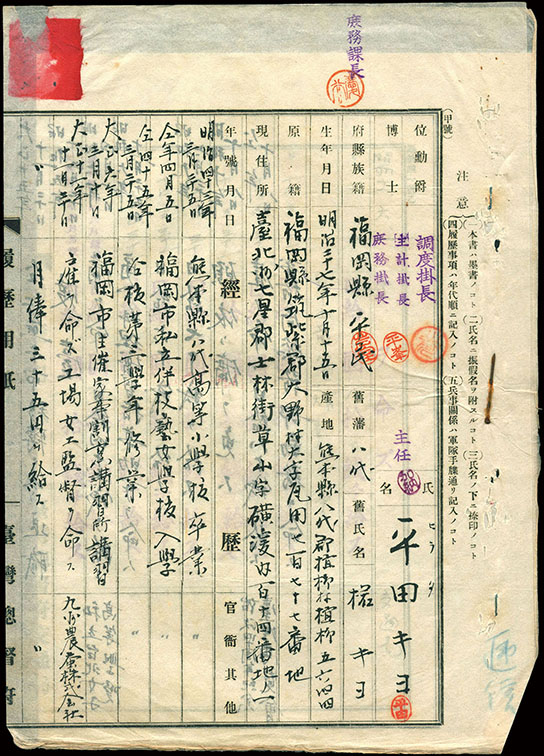 庶務課長
(甲號)
注意
一本書ハ墨書ノコト
二氏名ニ振假名ヲ附スルコト
三氏名ノ下ニ捺印ノコト
四履歷事項ハ年代順ニ記入ノコト
五兵事關係ハ軍隊手牒通リ記入ノコト
位勳爵
博士
調度掛長
主計掛長
庶務掛長
主任
氏名
ヒラタ
平田キヨ
府縣族籍
福岡縣平民
舊藩
八代
舊氏名
キヨ
生年月日
明治三十七年十月十五日
產地
熊本縣八代郡植柳村植柳五六四四
原籍
福岡縣筑紫郡大野村大字
七百七十七番地
現住所
臺北州七星郡士林街草山字磺溪內百十四番地ノ一
年號月日
經歷
官衙其他
明治四十三年
三月二十五日
熊本縣八代高等小學校卒業
〃
仝年四月五日
福岡市私立伴技藝女學校入學
〃
仝四十五年
三月二十五日
仝校第二學年修業
〃
大正六年
三月十日
福岡市主催家事割烹講習所講習
〃
大正十年
十二月二十日
雇ヲ命ズ工場女工監督ヲ命ス
九州農產株式會社
〃
月俸三十五円ヲ給ス
〃
履歷用紙
臺灣總督府